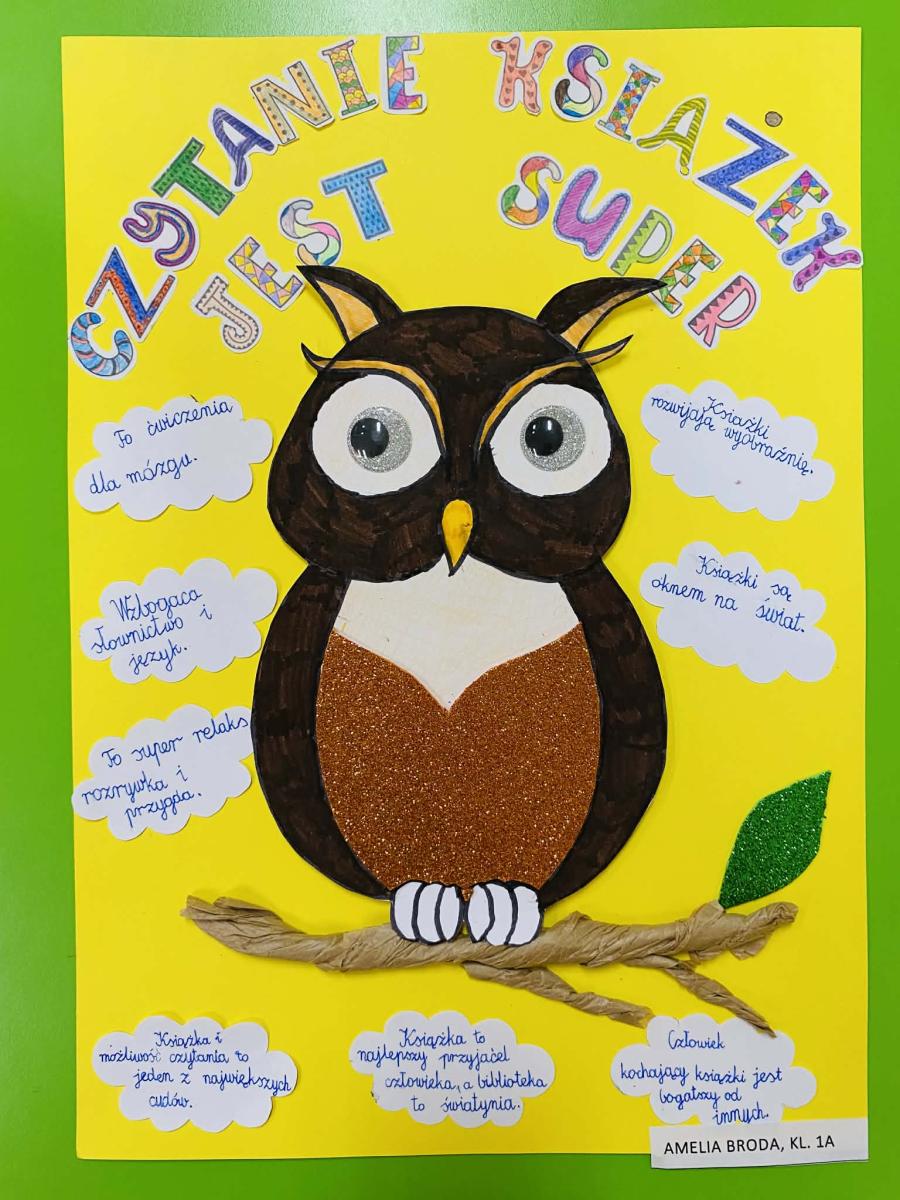 CZYTANIE KSIAŻEK
JEST SUPER
To ćwiczenia
dla mózgu.
Książki
rozwijają wyobraźnię.
Wzbogaca
słownictwo i
język.
Książki są
oknem na świat.
To super relaks
rozrywka i
Książka i
możliwość czytania to
jeden z największych
cudów.
Książka to
najlepszy przyjaćel
człowieka, a biblioteka
to świątynia.
Człowiek
kochający książki jest
bogatszy od
innych.
AMELIA BRODA, KL. 1A